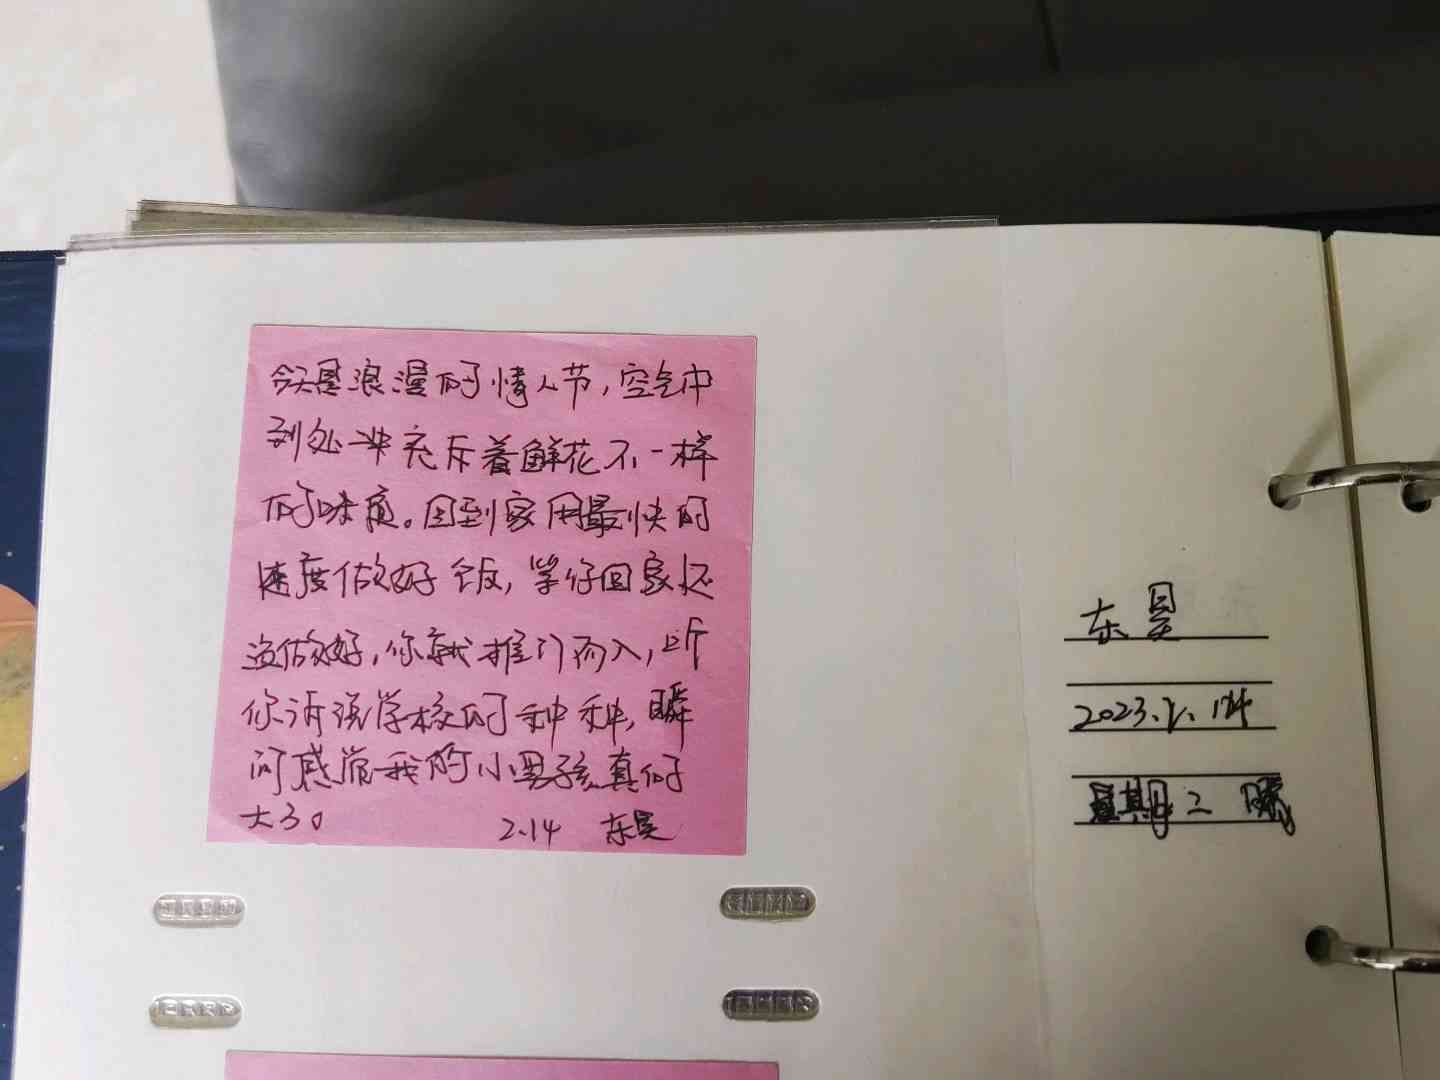 今天是浪漫的情人节，空气中
到处充斥着鲜花不一样
的味道。回到家用最快的
速度做好饭，等你回家还
没做好，你就推门而入，听
你诉说学校的种种，瞬
间感觉我的小男孩真的好
大了。
2.14 东昊
东昊
2023.2.14
星期二 晴